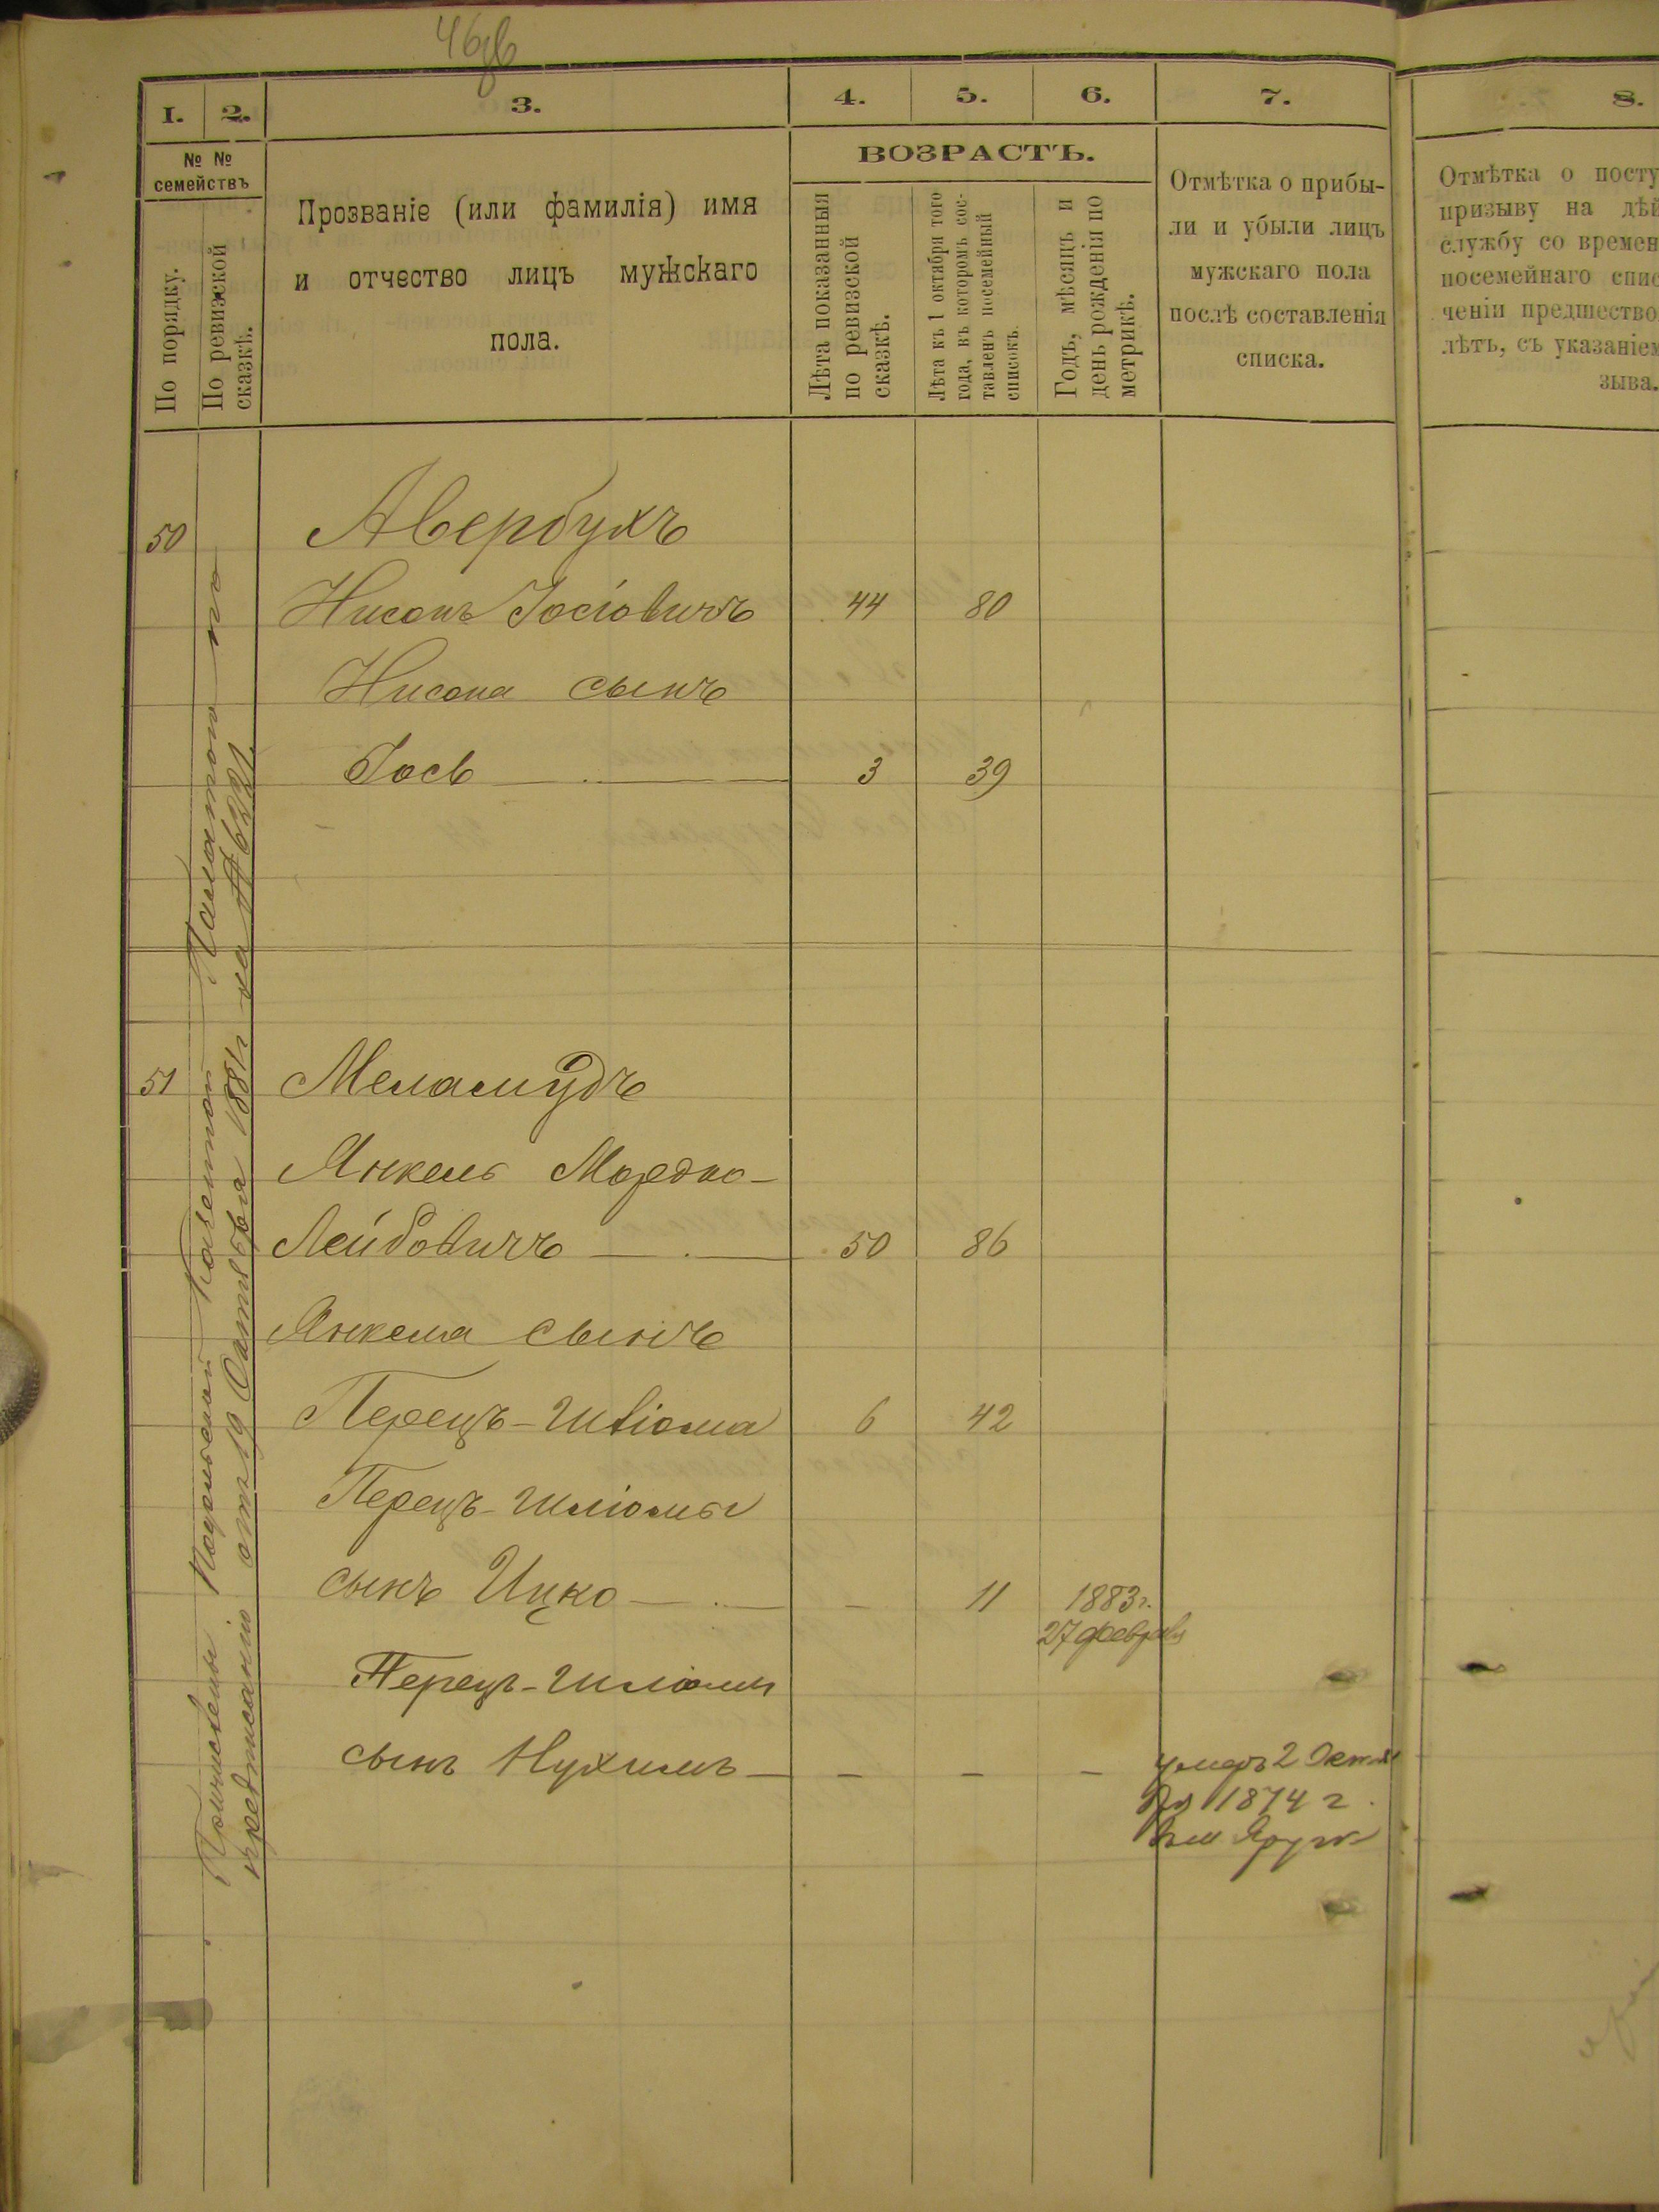 46об
1. 2. 3. 4. 5. 6. 7. 8.
№ №
семействъ
По порядку.
По ревизской
сказкѣ.
Прозваніе (или фамилія) имя
и отчество лицъ мужскаго
пола.
ВОЗРАСТЪ.
Лѣта показанныя
по ревизской
сказкѣ.
Лѣта къ 1 октября того
года, въ которомъ сос-
тавленъ посемейный
списокъ.
Годъ, мѣсяцъ и
день рожденія по
метрикѣ.
Отмѣтка о прибы-
ли и убыли лицъ
мужскаго пола
послѣ составленія
списка.
Отмѣтка о посту
призыву на дѣй
службу со времен
посемейнаго спис
ченіи предшество
лѣтъ, съ указаніем
зыва.
50 Авербухъ
Нисонъ Іосіовичъ 44 80
Нисона сынъ
Іось 3 39
51 Меламудъ
Янкель Мордко-
Лейбовичъ 50 86
Янкеля сынъ
Перецъ-Шліома 6 42
Перецъ-Шліомы
сынъ Ицко — 11 1883 г.
27 февраля
Перецъ-Шліомы
сынъ Нухимъ — — — умеръ 2 Октяб
ря 1874 г.
Причислены Подольской Казенной Палатой по
предписанію отъ 19 Октября 1881 г за № 6221